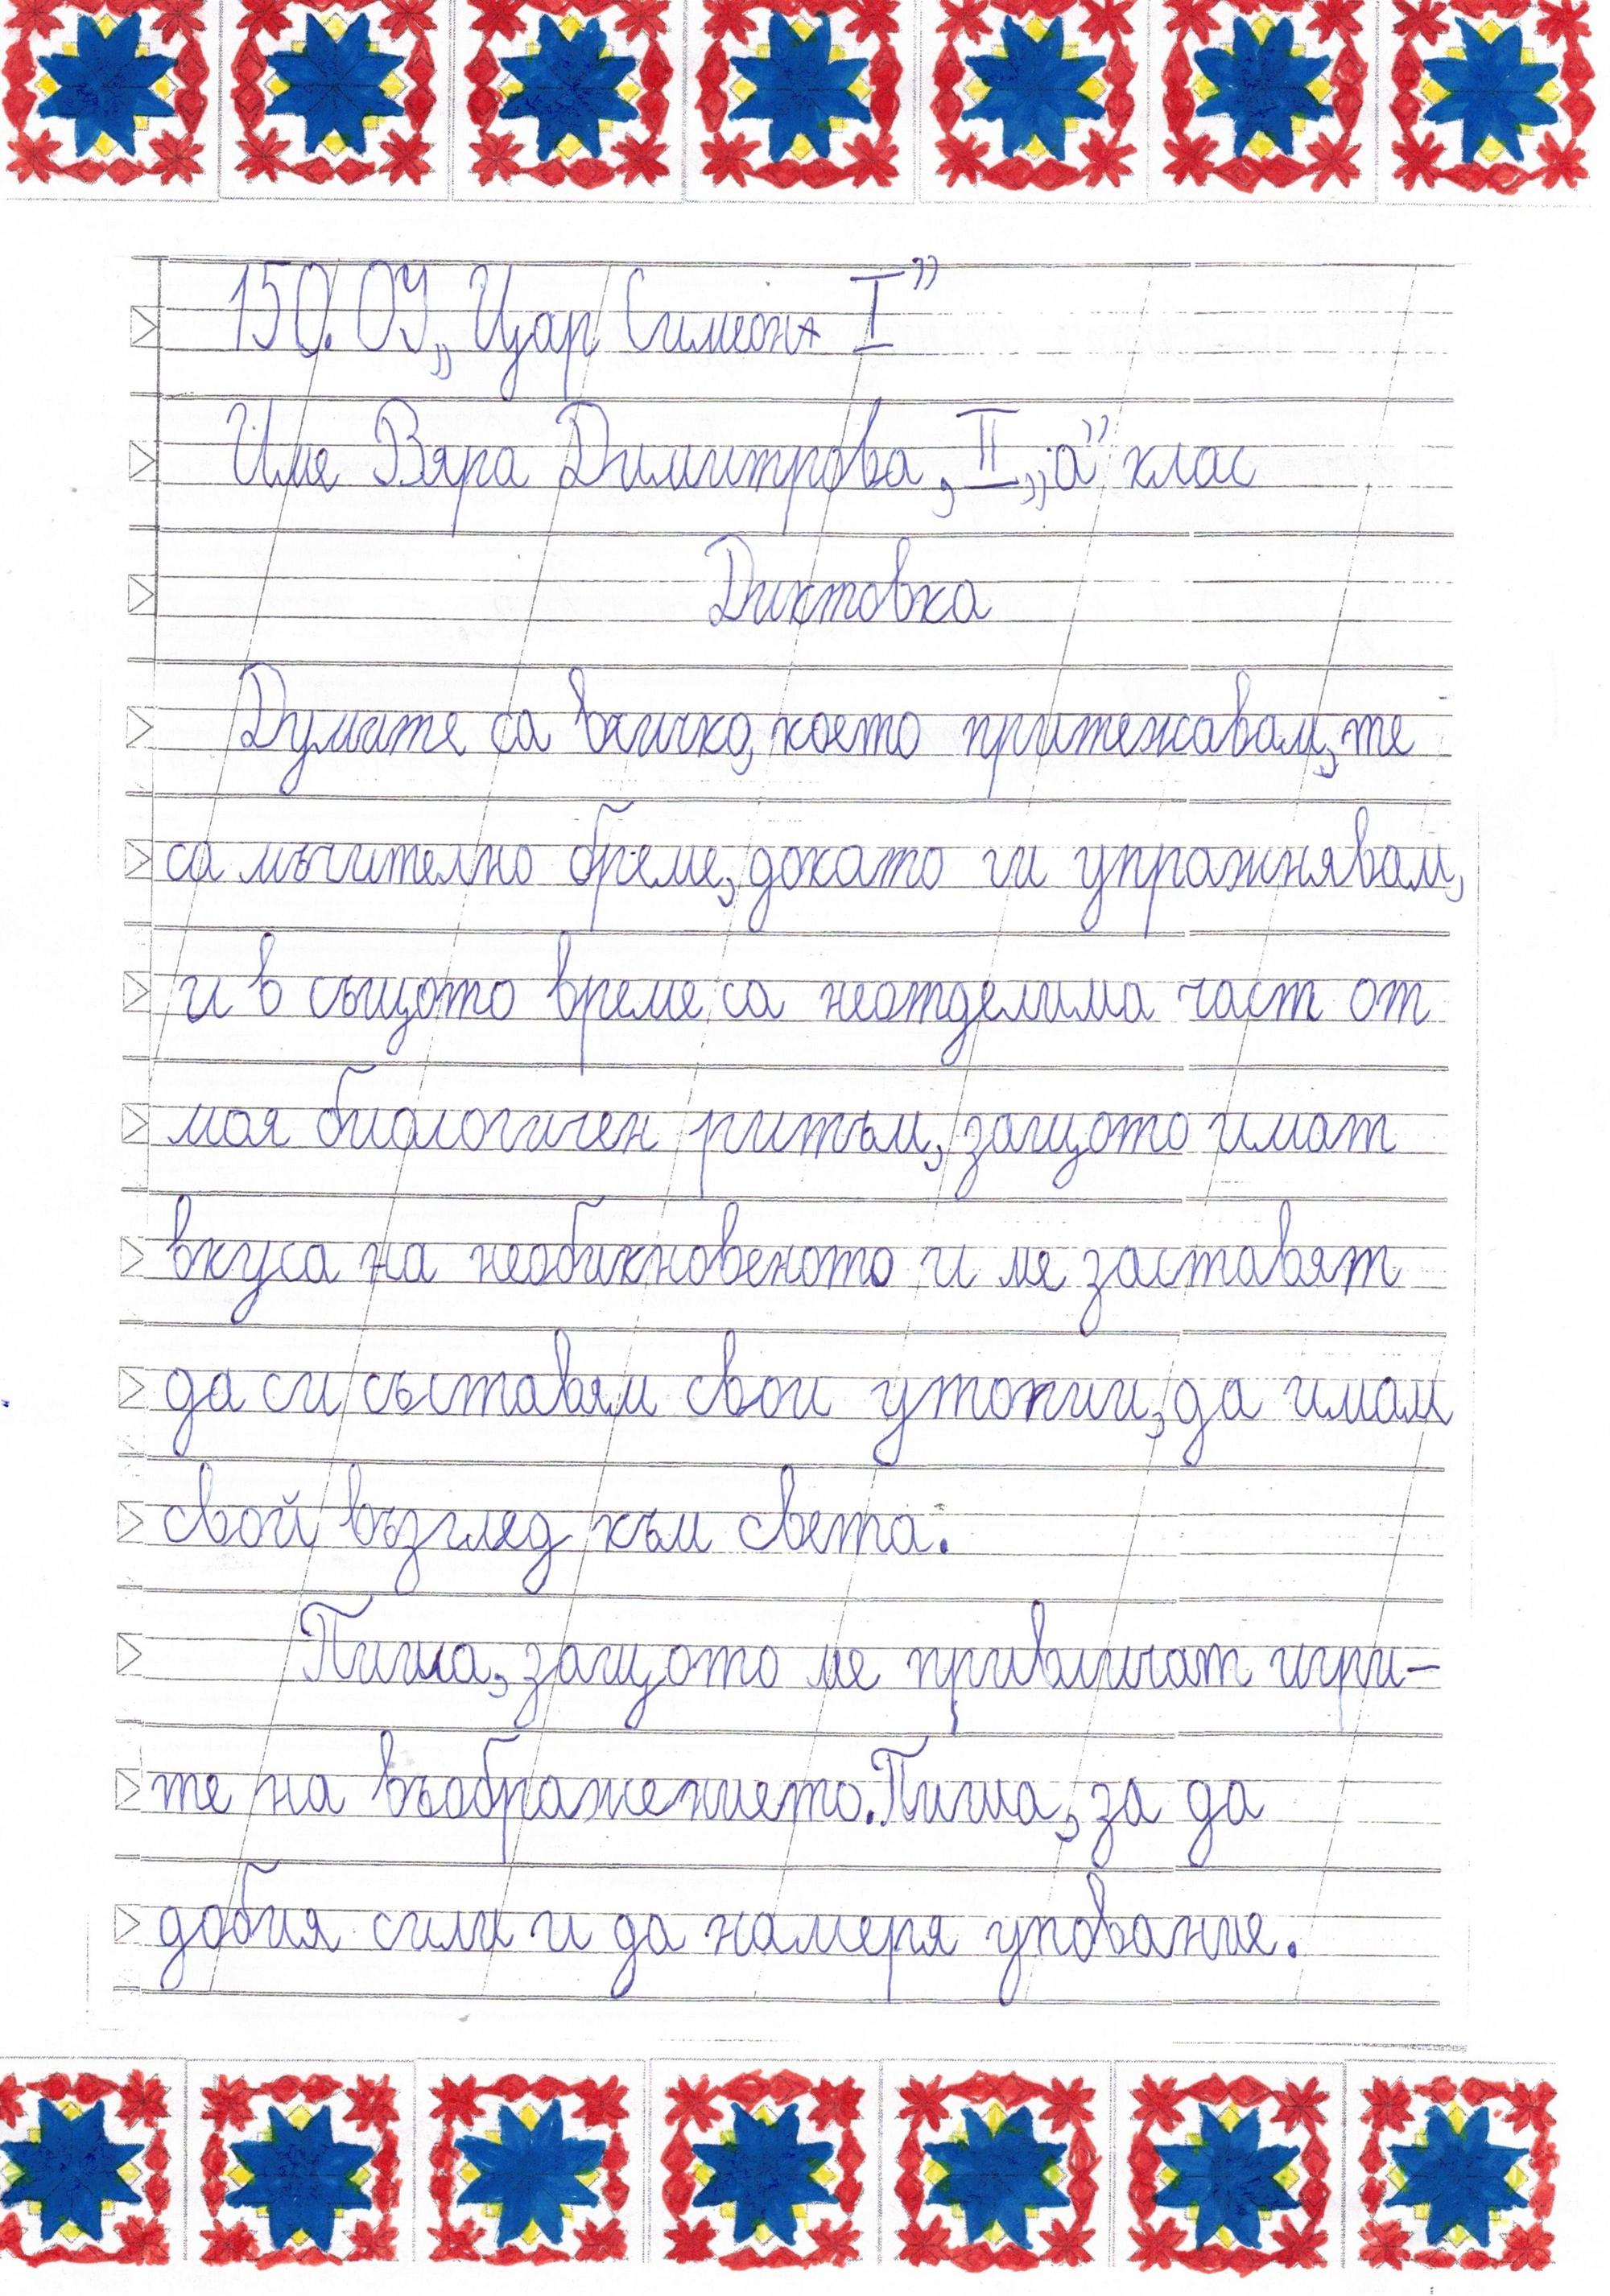 150. ОУ „Цар Симеон I”
Име Вяра Димитрова, II „а” клас
Диктовка
Думите са всичко, което притежавам, те
са мъчително бреме, докато ги упражнявам,
и в същото време са неотделима част от
моя биологичен ритъм, защото имат
вкуса на необикновеното и ме заставят
да си съставям свои утопии, да имам
свой възглед към света.
Пиша, защото ме привличат игри-
те на въображението. Пиша, за да
добия сили и да намеря упование.